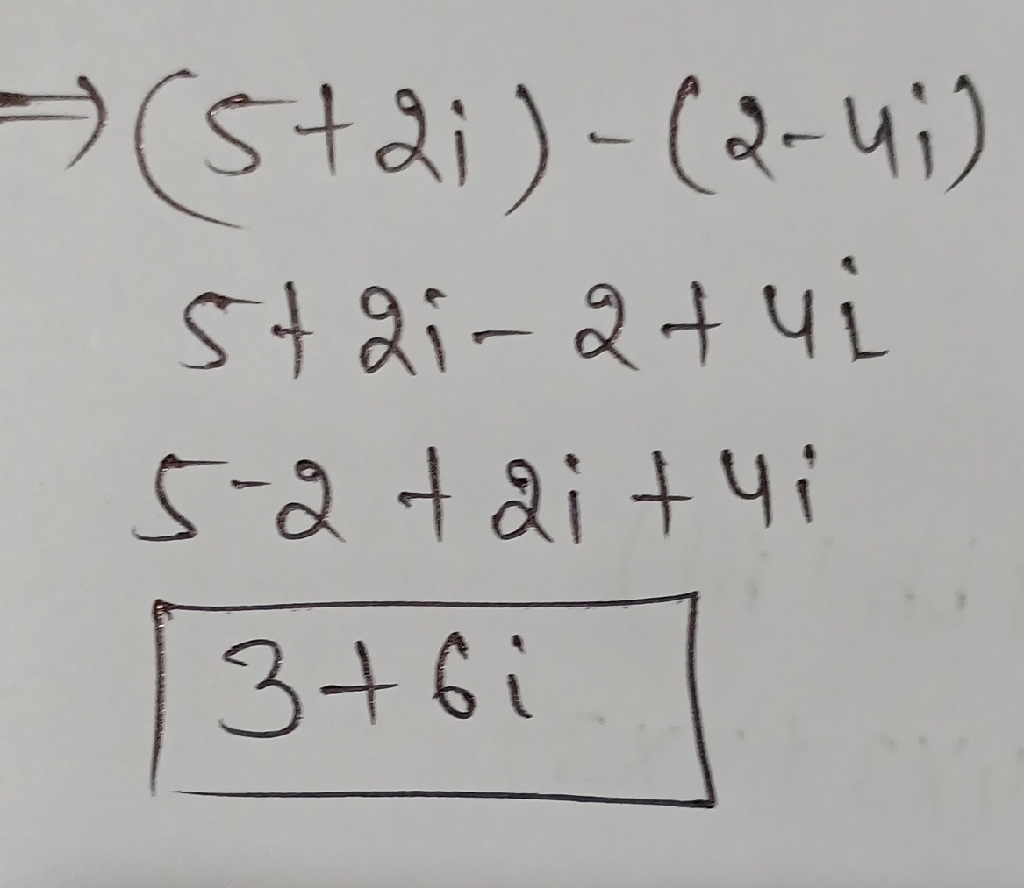 ⇒ (5+2i) - (2-4i)
5+2i - 2 + 4i
5-2 + 2i + 4i
3+6i